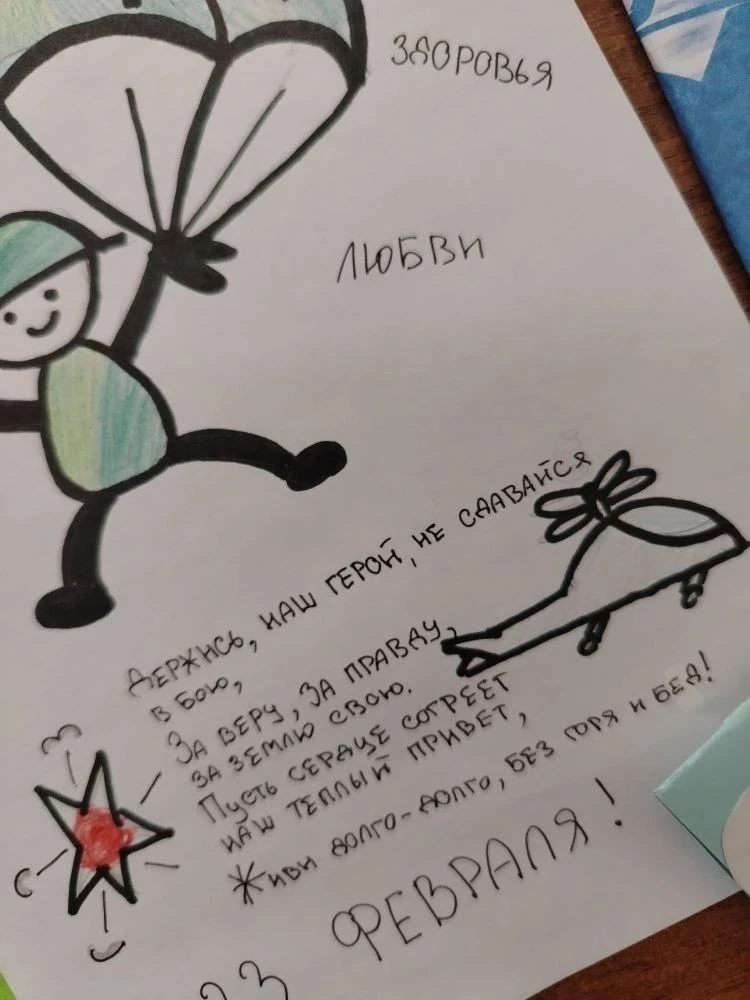 ЗДОРОВЬЯ
ЛЮБВИ
ДЕРЖИСЬ, НАШ ГЕРОЙ, НЕ СДАВАЙСЯ
В БОЮ,
ЗА ВЕРУ, ЗА ПРАВДУ,
ЗА ЗЕМЛЮ СВОЮ.
ПУСТЬ СЕРДЦЕ СОГРЕЕТ
НАШ ТЕПЛЫЙ ПРИВЕТ,
ЖИВИ ДОЛГО-ДОЛГО, БЕЗ ГОРЯ И БЕД!
23 ФЕВРАЛЯ!